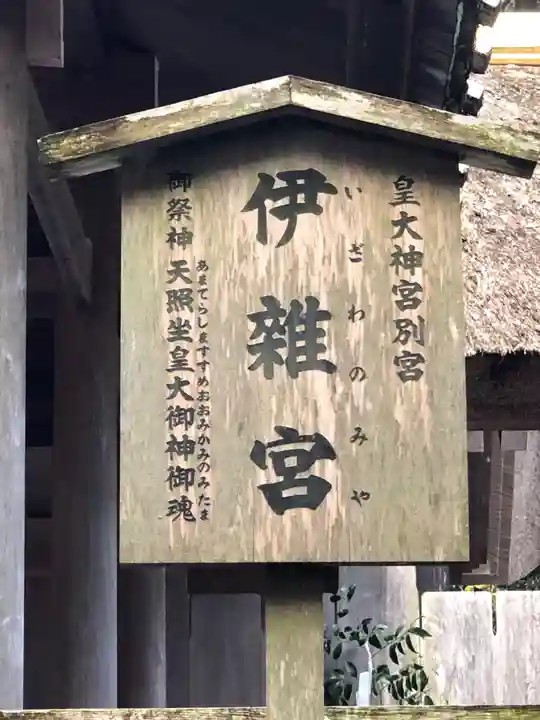 皇大神宮別宮
伊雜宮
いざわのみや
御祭神 天照坐皇大御神御魂
あまてらしますすめおおみかみのみたま